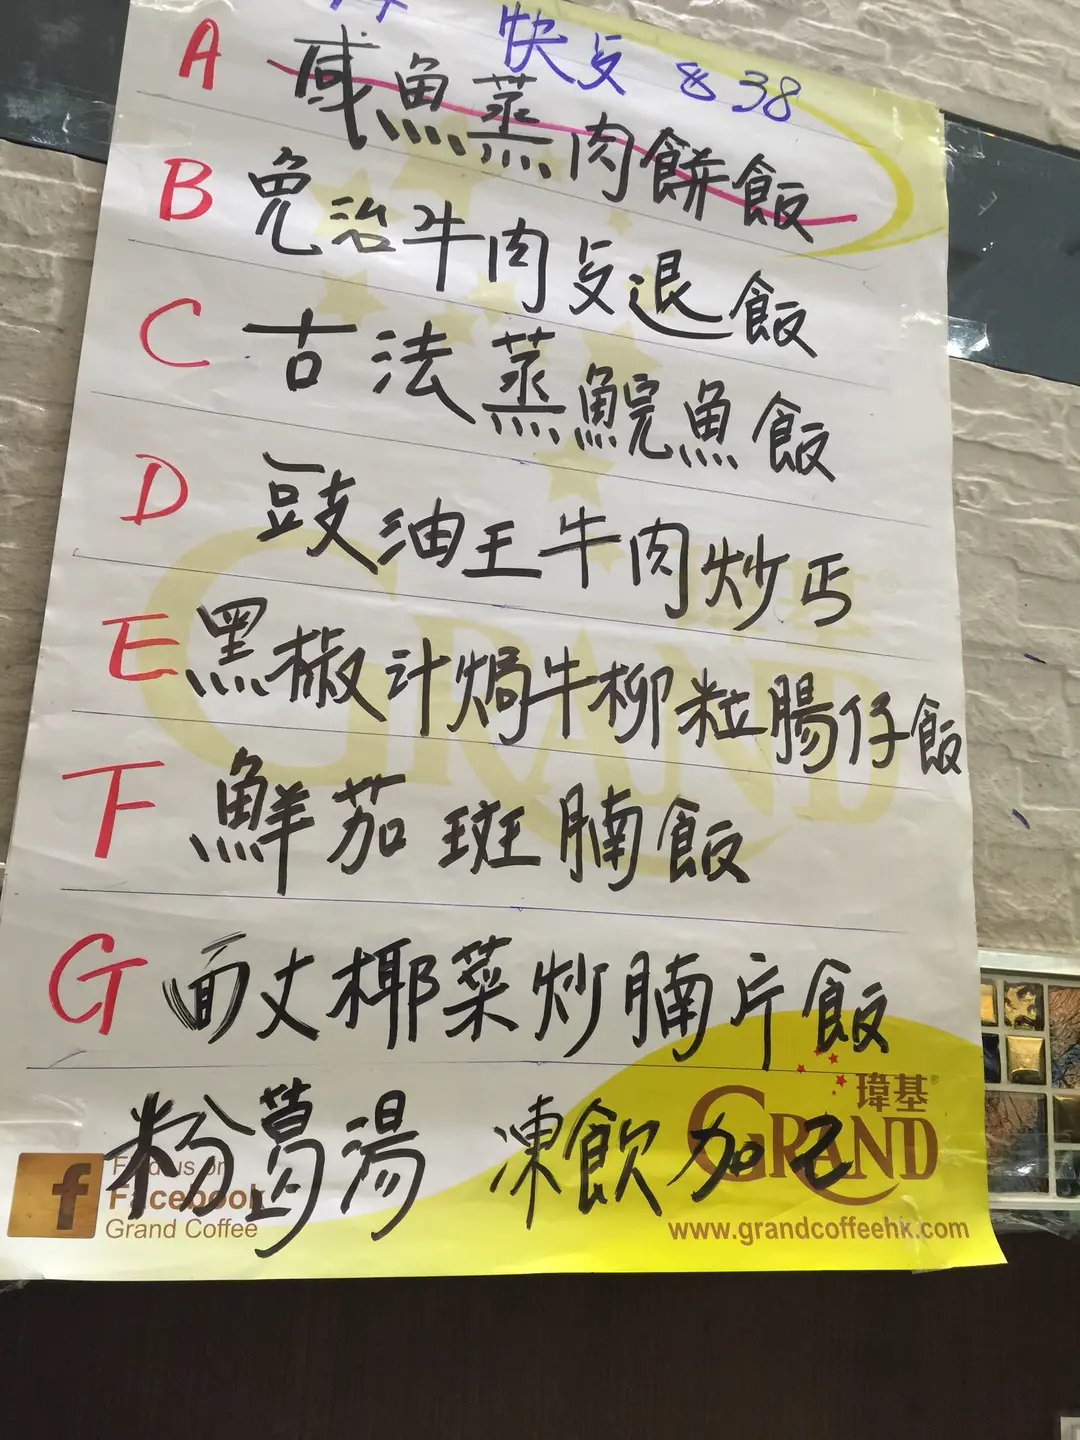 快歺 $38
A 咸魚蒸肉餅飯
B 免治牛肉歺退飯
C 古法蒸鯇魚飯
D 豉油王牛肉炒丐
E 黑椒汁焗牛柳粒腸仔飯
F 鮮茄斑腩飯
G 面丈椰菜炒腩片飯
粉葛湯 凍飲加2
瑋基®
GRAND
Find us on
Facebook
Grand Coffee
www.grandcoffeehk.com